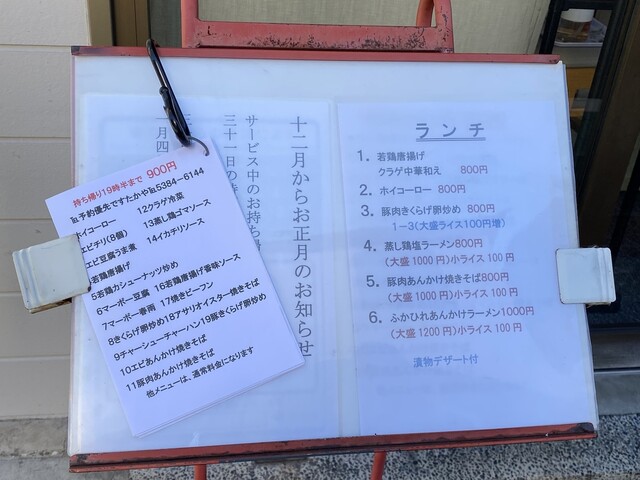 持ち帰り19時半まで 900円
℡予約優先ですたかや℡5384-6144
ホイコーロー 12クラゲ冷菜
エビチリ(8個) 13蒸し鶏ゴマソース
エビ豆腐うま煮 14イカチリソース
若鶏唐揚げ
5若鶏カシューナッツ炒め
6マーボー豆腐 16若鶏唐揚げ香味ソース
7マーボー春雨 17焼きビーフン
8きくらげ卵炒め18アサリオイスター焼きそば
9チャーシューチャーハン19豚きくらげ卵炒め
10エビあんかけ焼きそば
11豚肉あんかけ焼きそば
他メニューは、通常料金になります
十二月からお正月のお知らせ
サービス中のお持ち帰
三十一日の
月四
ランチ
1. 若鶏唐揚げ
クラゲ中華和え 800円
2. ホイコーロー 800円
3. 豚肉きくらげ卵炒め 800円
1-3(大盛ライス100円増)
4. 蒸し鶏塩ラーメン800円
(大盛 1000円)小ライス 100円
5. 豚肉あんかけ焼きそば800円
(大盛 1000円)小ライス 100円
6. ふかひれあんかけラーメン1000円
(大盛 1200円)小ライス 100円
漬物デザート付